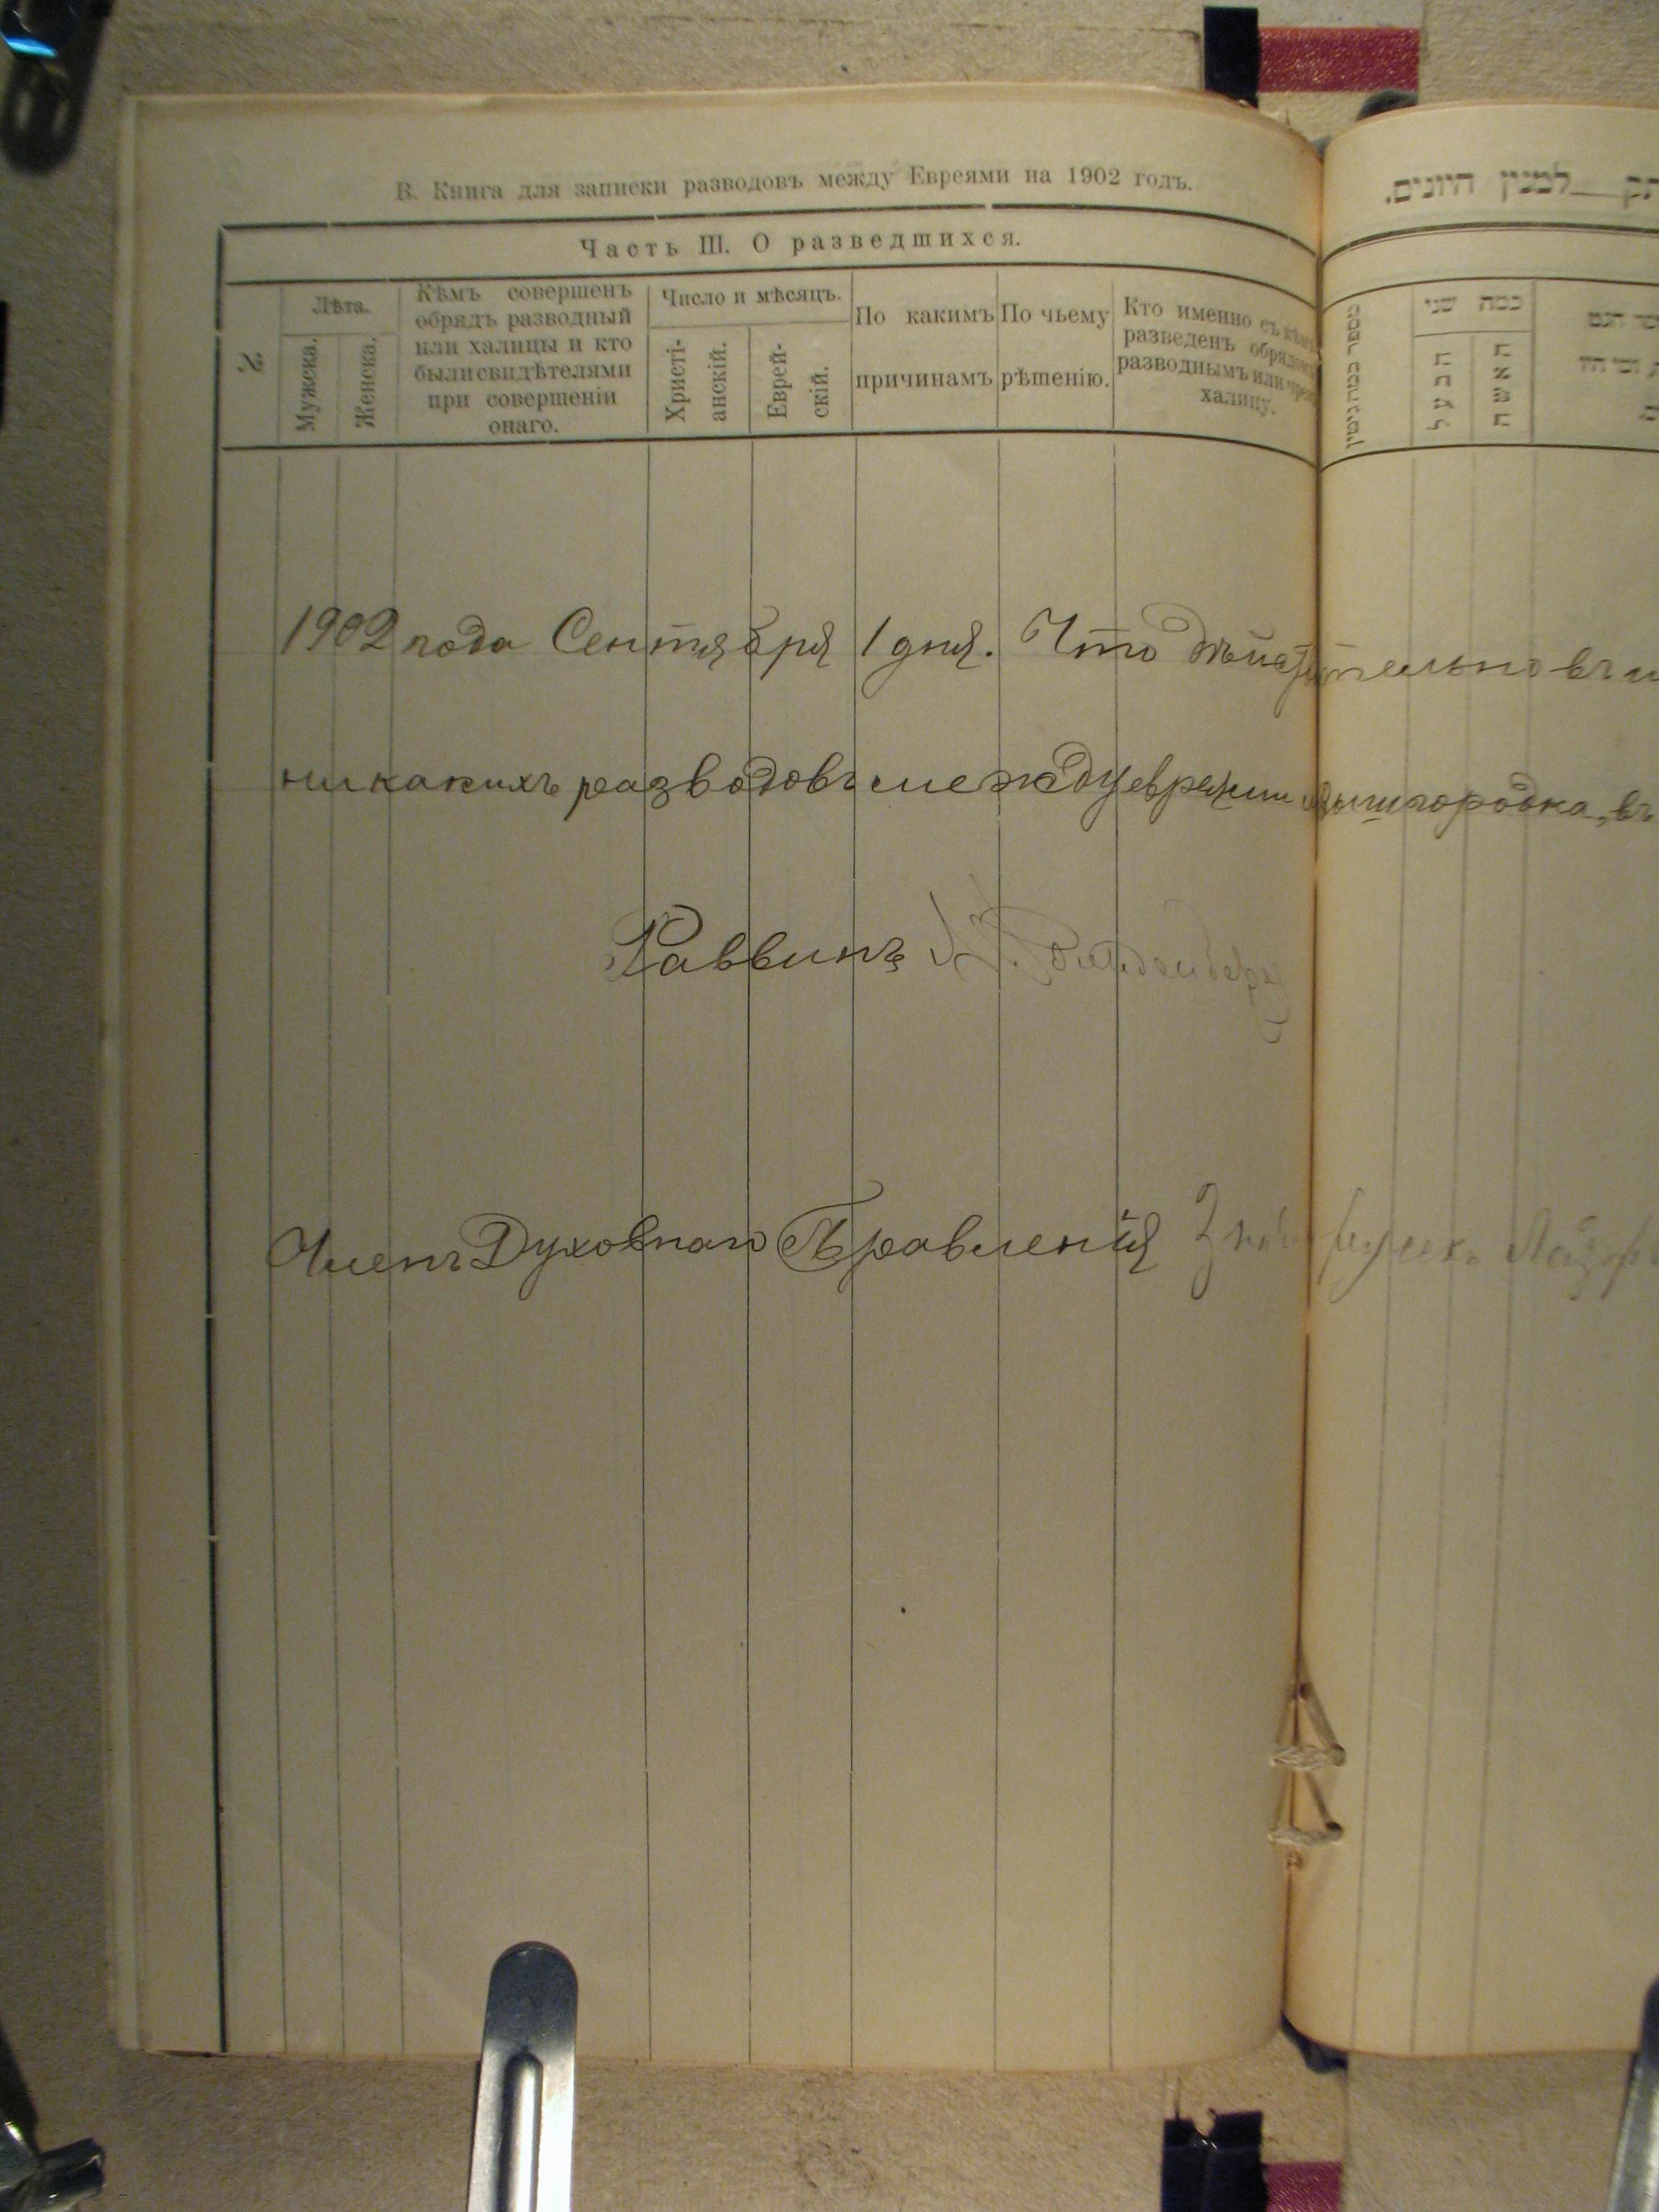 В. Книга для записки разводовъ между Евреями на 1902 годъ.
Часть III. О разведшихся.
№
Лѣта.
Мужска.
Женска.
Кѣмъ совершенъ
обрядъ разводный
или халицы и кто
были свидѣтелями
при совершеніи
онаго.
Число и мѣсяцъ.
Христі-
анскій.
Еврей-
скій.
По какимъ
причинамъ
По чьему
рѣшенію.
Кто именно съ кѣмъ
разведенъ обрядомъ
разводнымъ или чрезъ
халицу.
למנין היונים.
כמה שני
הבעל
האשה
1902 года Сентября 1 дня. Что дѣйствительно въ
никакихъ разводовъ между евреями Вышгородка, въ
Раввинъ
Членъ Духовнаго Правленія